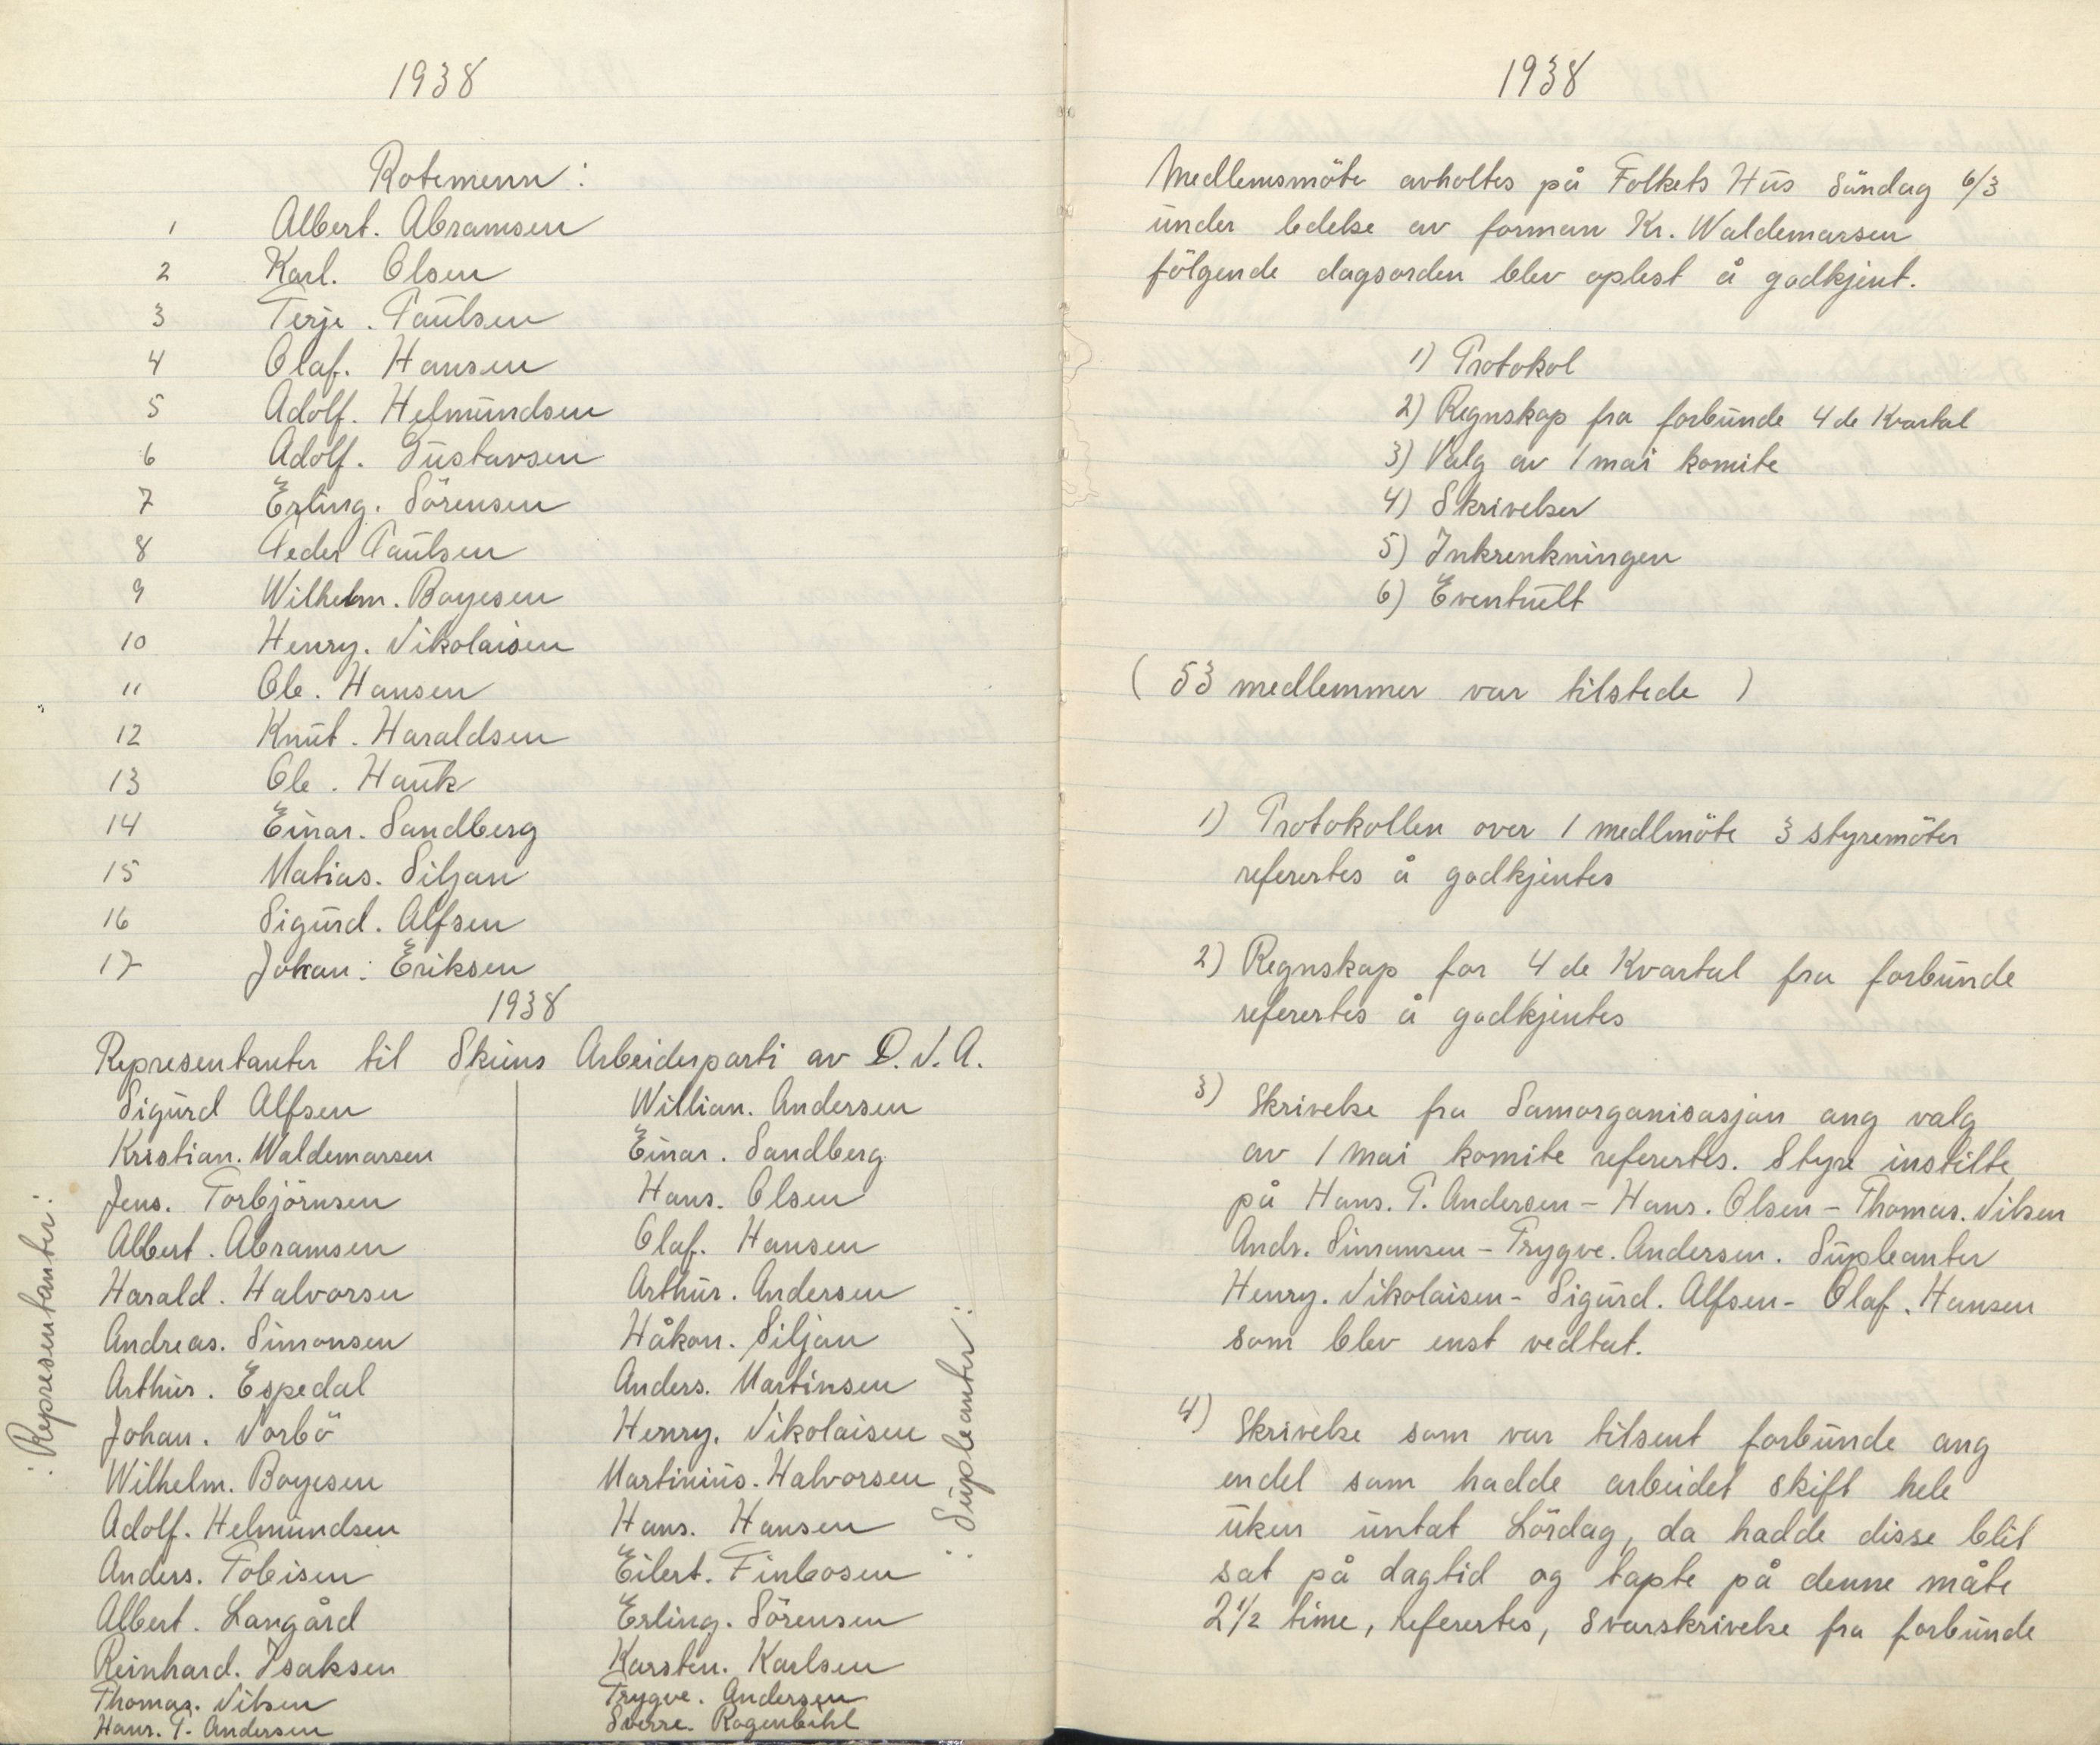 1938
Rotemenn:
1 Albert. Abramsen
2 Karl. Olsen
3 Terje. Paulsen
4 Olaf. Hansen
5 Adolf. Helmundsen
6 Adolf. Gustavsen
7 Erling. Sörensen
8 Peder Paulsen
9 Wilhelm. Boyesen
10 Henry. Nikolaisen
11 Ole. Hansen
12 Knut. Haraldsen
13 Ole. Hauk
14 Einar. Sandberg
15 Matias. Siljan
16 Sigurd. Alfsen
17 Johan: Eriksen
1938
Representanter til Skiens Arbeiderparti av D.N.A.
:Representanter:
Sigurd Alfsen
Kristian. Waldemarsen
Jens. Torbjörnsen
Albert. Abramsen
Harald. Halvorsen
Andreas. Simonsen
Arthur. Espedal
Johan. Norbö
Wilhelm. Boyesen
Adolf. Helmundsen
Anders. Tobisen
Albert. Langård
Reinhard. Isaksen
Thomas. Nilsen
Hans. P. Andersen
Willian. Andersen
Einar. Sandberg
Hans. Olsen
Olaf. Hansen
Arthur. Andersen
Håkon. Siljan
Anders. Martinsen
Henry. Nikolaisen
Martinius. Halvorsen
Hans. Hansen
Eilert. Finbosen
Erling. Sörensen
Karsten. Karlsen
Trygve. Andersen
Sverre. Rogenbihl
:Supleanter:
1938
Medlemsmöte avholtes på Folkets Hus Söndag 6/3
under ledelse av forman Kr. Waldemarsen
fölgende dagsorden blev oplest å godkjent.
1) Protokol
2) Regnskap fra forbunde 4de Kvartal
3) Valg av 1 mai komite
4) Skrivelser
5) Inkrenkningen
6) Eventuelt
( 53 medlemmer var tilstede )
1) Protokollen over 1 medlmöte 3 styremöter
referertes å godkjentes
2) Regnskap for 4de Kvartal fra forbunde
referertes å godkjentes
3) Skrivelse fra Samorganisasjon ang valg
av 1 mai komite referertes. Styre instilte
på Hans. P. Andersen - Hans. Olsen - Thomas. Nilsen
Andr. Simonsen - Trygve. Andersen. Supleanter
Henry. Nikolaisen - Sigurd. Alfsen - Olaf. Hansen
som blev enst vedtat.
4) Skrivelse som var tilsent forbunde ang
endel som hadde arbeidet skift hele
uken untat Lördag, da hadde disse blit
sat på dagtid og tapte på denne måte
2 1/2 time, referertes, Svarskrivelse fra forbunde